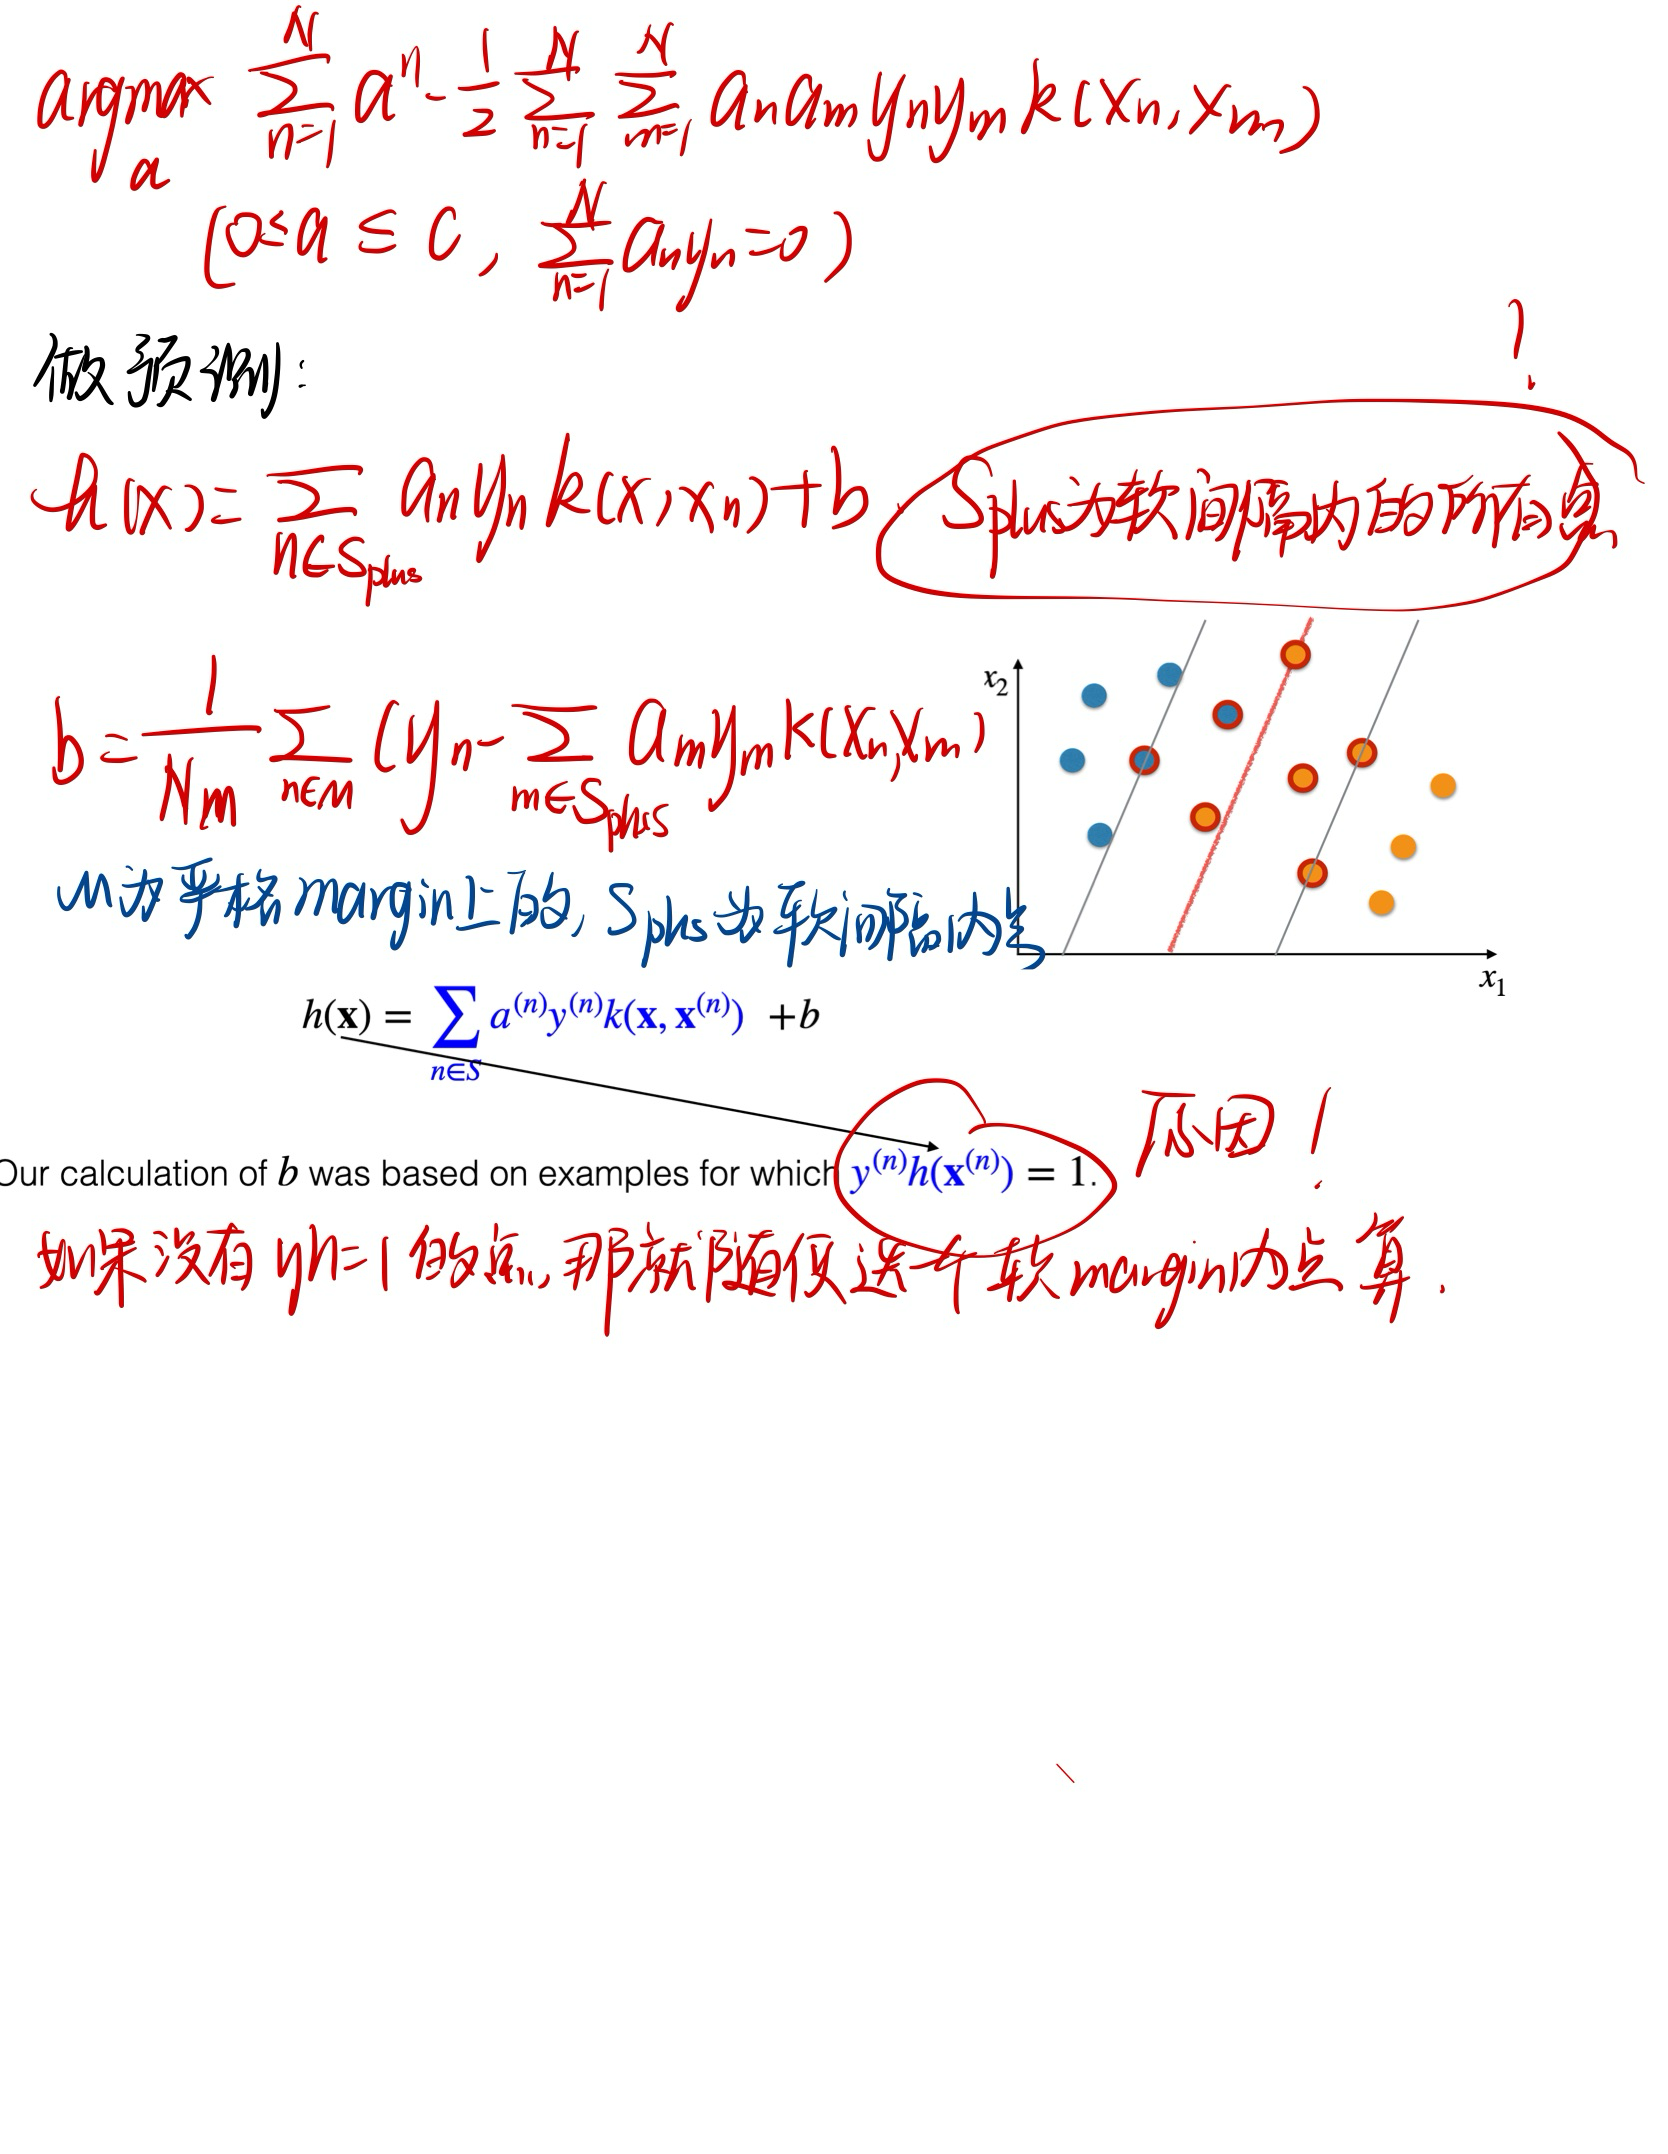 argmax_a \sum_{n=1}^{N} a^n - \frac{1}{2} \sum_{n=1}^{N} \sum_{m=1}^{N} a_n a_m y_n y_m k(x_n, x_m)
(0≤a≤C, \sum_{n=1}^{N} a_n y_n = 0)
!
做预测:
h(x) = \sum_{n∈S_{plus}} a_n y_n k(x, x_n) + b. S_{plus}为软间隔内的所有点
b = \frac{1}{N_m} \sum_{n∈M} (y_n - \sum_{m∈S_{plus}} a_m y_m k(x_n, x_m)
x_2
M为严格margin上的, S_{plus}为软间隔内点
x_1
h(x) = \sum_{n∈S} a^{(n)} y^{(n)} k(x, x^{(n)}) + b
原因!
Our calculation of b was based on examples for which y^{(n)} h(x^{(n)}) = 1.
如果没有yh=1的点, 那就随便选一个软margin内点算.